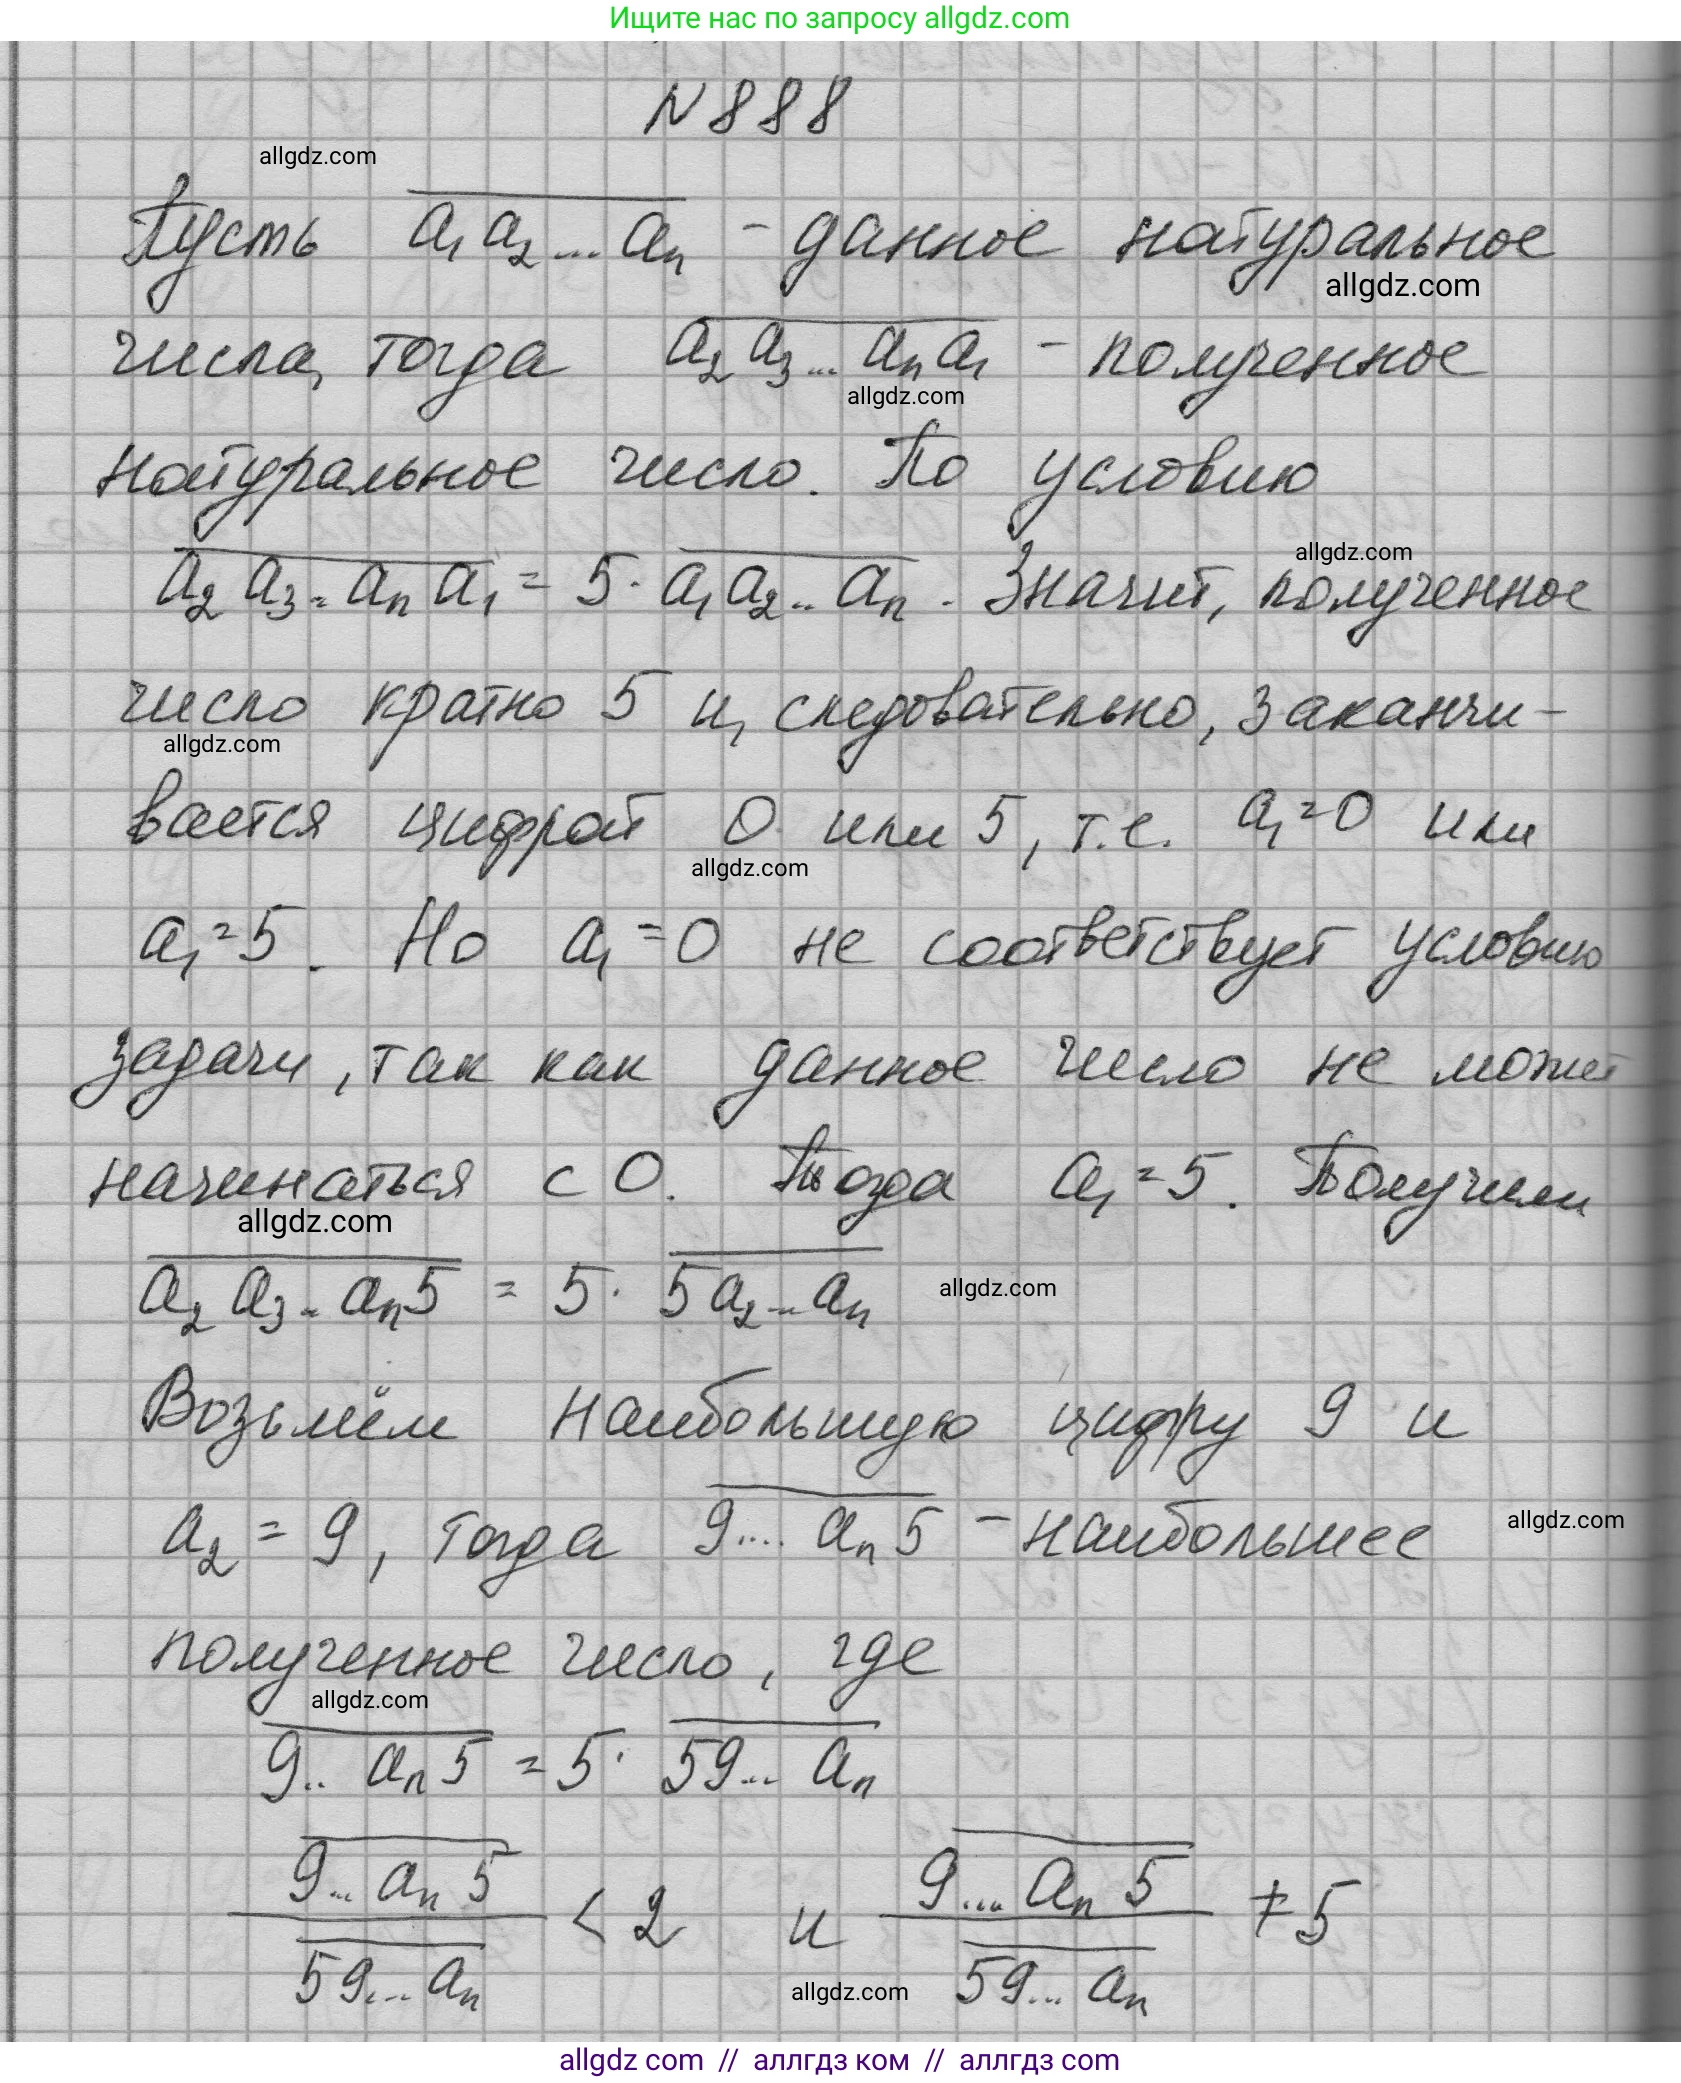 Ищите нас по запросу allgdz.com
N 888
allgdz.com
Пусть a₁a₂...aₙ - данное натуральное
allgdz.com
числа, тогда a₂a₃...aₙa₁ - полученное
allgdz.com
натуральное число. По условию
allgdz.com
a₂a₃...aₙa₁ = 5·a₁a₂...aₙ. Значит, полученное
число кратно 5 и, следовательно, заканчи-
allgdz.com
вается цифрой 0 или 5, т.е. a₁=0 или
allgdz.com
a₁=5. Но a₁=0 не соответствует условию
задачи, так как данное число не может
начинаться с 0. Тогда a₁=5. Получим
allgdz.com
a₂a₃...aₙ5 = 5·5a₂...aₙ
allgdz.com
Возьмём наибольшую цифру 9 и
a₂ = 9, тогда 9....aₙ5 - наибольшее
allgdz.com
полученное число, где
allgdz.com
9..aₙ5 = 5·59...aₙ
9...aₙ5 / 59...aₙ < 2 и 9....aₙ5 / 59...aₙ ≠ 5
allgdz.com
allgdz com // аллгдз ком // аллгдз com